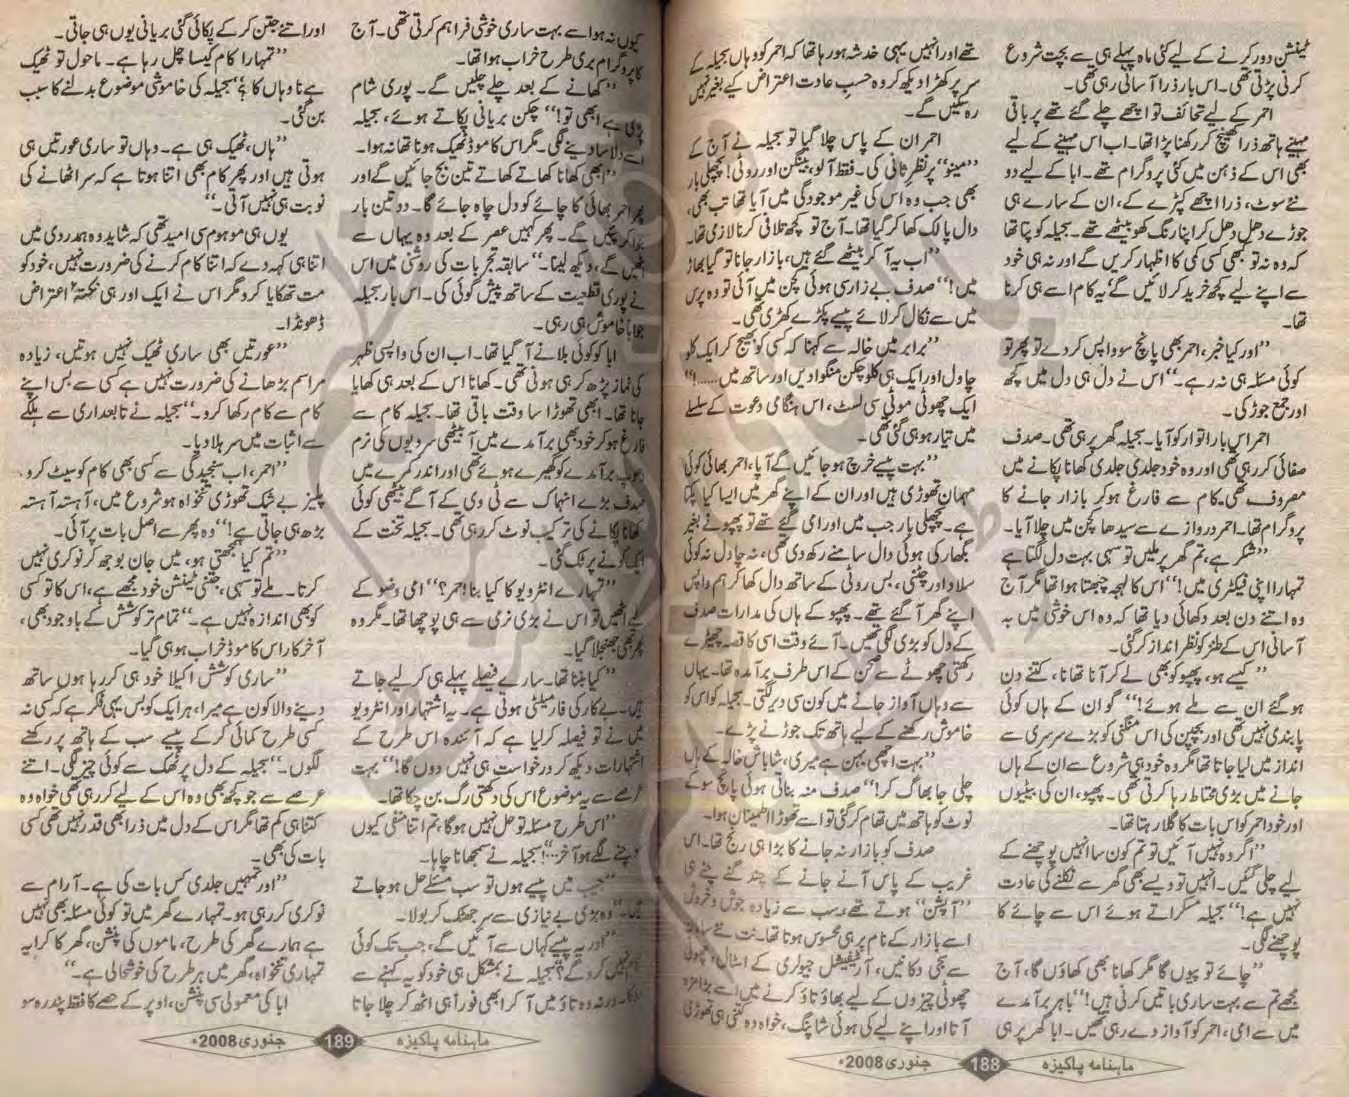 ٹینشن دور کرنے کے لیے کئی ماہ پہلے ہی سے بچت شروع
کرنی پڑتی تھی۔ اس بار ذرا آسانی رہی تھی۔
احمر کے لیے تحائف تو اچھے چلے گئے تھے پر باقی
مہینے ہاتھ ذرا کھینچ کر رکھنا پڑا تھا۔ اب اس مہینے کے لیے
بھی اس کے ذہن میں کئی پروگرام تھے۔ ابا کے لیے دو
نئے سوٹ، ذرا اچھے کپڑے کے، ان کے سارے ہی
جوڑے دھل دھل کر اپنا رنگ کھو بیٹھے تھے۔ بجیلہ کو پتا تھا
کہ وہ نہ تو بھی کسی کمی کا اظہار کریں گے اور نہ ہی خود
سے اپنے لیے کچھ خرید کر لائیں گے یہ کام اسے ہی کرنا
تھا۔
’’اور کیا خبر، احمر بھی پانچ سو واپس کر دے تو پھر تو
کوئی مسئلہ ہی نہ رہے۔‘‘ اس نے دل ہی دل میں کچھ
اور جمع جوڑ کی۔
احمر اس بار اتوار کو آیا۔ بجیلہ گھر پر ہی تھی۔ صدف
صفائی کر رہی تھی اور وہ خود جلدی جلدی کھانا پکانے میں
مصروف تھی۔ کام سے فارغ ہو کر بازار جانے کا
پروگرام تھا۔ احمر دروازے سے سیدھا کچن میں چلا آیا۔
’’شکر ہے، تم گھر پر ملیں تو سہی بہت دل لگتا ہے
تمہارا اپنی فیکٹری میں!‘‘ اس کا لہجہ چبھتا ہوا تھا مگر آج
وہ اتنے دن بعد دکھائی دیا تھا کہ وہ اس خوشی میں بہ
آسانی اس کے طنز کو نظر انداز کر گئی۔
’’کیسے ہو، پھپو کو بھی لے کر آنا تھا نا، کتنے دن
ہو گئے ان سے ملے ہوئے!‘‘ گو ان کے ہاں کوئی
پابندی نہیں تھی اور بچپن کی اس منگنی کو بڑے سرسری سے
انداز میں لیا جاتا تھا مگر وہ خود ہی شروع سے ان کے ہاں
جانے میں بڑی محتاط رہا کرتی تھی۔ پھپو، ان کی بیٹیوں
اور خود احمر کو اس بات کا گلہ رہتا تھا۔
’’اگر وہ نہیں آئیں تو تم کون سا انہیں پوچھنے کے
لیے چلی گئیں۔ انہیں تو ویسے بھی گھر سے نکلنے کی عادت
نہیں ہے!‘‘ بجیلہ مسکراتے ہوئے اس سے چائے کا
پوچھنے لگی۔
’’چائے تو پیوں گا مگر کھانا بھی کھاؤں گا، آج
مجھے تم سے بہت ساری باتیں کرنی ہیں!‘‘ باہر برآمدے
میں سے امی، احمر کو آواز دے رہی تھیں۔ ابا گھر پر ہی
تھے اور انہیں یہی خدشہ ہو رہا تھا کہ احمر کو وہاں بجیلہ کے
سر پر کھڑا دیکھ کر وہ حسب عادت اعتراض کیے بغیر نہیں
رہ سکیں گے۔
احمر ان کے پاس چلا گیا تو بجیلہ نے آج کے
’’مینو‘‘ پر نظر ثانی کی۔ فقط آلو، بینگن اور روٹی! پچھلی بار
بھی جب وہ اس کی غیر موجودگی میں آیا تھا تب بھی،
دال پالک کھا کر گیا تھا۔ آج تو کچھ تلافی کرنا لازمی تھا۔
’’اب یہ آ کر بیٹھ گئے ہیں، بازار جانا تو گیا بھاڑ
میں!‘‘ صدف بے زار سی ہوئی کچن میں آئی تو وہ پرس
میں سے نکال کر لائے پیسے پکڑے کھڑی تھی۔
’’برابر میں خالہ سے کہنا کہ کسی کو بھیج کر ایک کلو
چاول اور ایک ہی کلو چکن منگوا دیں اور ساتھ میں......!‘‘
ایک چھوٹی موٹی سی لسٹ، اس ہنگامی دعوت کے سلسلے
میں تیار ہو ہی گئی تھی۔
’’بہت پیسے خرچ ہو جائیں گے آپا، احمر بھائی کوئی
مہمان تھوڑی ہیں اور ان کے اپنے گھر میں ایسا کیا پکتا
ہے۔ پچھلی بار جب میں اور امی گئے تھے تو پھپو نے بغیر
بگھار کی ہوئی دال سامنے رکھ دی تھی، نہ چاول نہ کوئی
سلاد اور چٹنی، بس روٹی کے ساتھ دال کھا کر ہم واپس
اپنے گھر آ گئے تھے۔ پھپو کے ہاں کی مدارات صدف
کے دل کو بڑی لگی تھیں۔ آئے وقت اسی کا قصہ چھیڑے
رکھتی چھوٹے سے صحن کے اس طرف برآمدہ تھا۔ یہاں
سے وہاں آواز جانے میں کون سی دیر لگتی۔ بجیلہ کو اس کو
خاموش رکھنے کے لیے ہاتھ تک جوڑنے پڑے۔
’’بہت اچھی بہن ہے میری، شاباش خالہ کے ہاں
چلی جا بھاگ کر!‘‘ صدف منہ بناتی ہوئی پانچ سو کے
نوٹ کو ہاتھ میں تھام کر گئی تو اسے تھوڑا اطمینان ہوا۔
صدف کو بازار نہ جانے کا بڑا ہی رنج تھا۔ اس
غریب کے پاس آنے جانے کے چند گنے چنے ہی
’’آپشن‘‘ ہوتے تھے وہ سب سے زیادہ جوش و خروش
اسے بازار کے نام پر ہی محسوس ہوتا تھا۔
سے سجی دکانیں، آرٹیفشل جیولری کے اسٹال، چھوٹی
چھوٹی چیزوں کے لیے بھاؤ تاؤ کرنے میں اسے بڑا مزہ
آتا اور اپنے لیے کی ہوئی شاپنگ، خواہ وہ کتنی ہی تھوڑی
ماہنامہ پاکیزہ 188 جنوری 2008ء
کیوں نہ ہو اسے بہت ساری خوشی فراہم کرتی تھی۔ آج
کا پروگرام بری طرح خراب ہوا تھا۔
’’کھانے کے بعد چلے چلیں گے۔ پوری شام
پڑی ہے ابھی تو!‘‘ چکن بریانی پکاتے ہوئے، بجیلہ
اسے دلاسا دینے لگی۔ مگر اس کا موڈ ٹھیک ہونا تھا نہ ہوا۔
’’ابھی کھانا کھاتے کھاتے تین بج جائیں گے اور
پھر احمر بھائی کا چائے کو دل چاہ جائے گا۔ دو تین بار
بنوا کر پئیں گے۔ پھر کہیں عصر کے بعد وہ یہاں سے
اٹھیں گے، دیکھ لینا۔‘‘ سابقہ تجربات کی روشنی میں اس
نے پوری قطعیت کے ساتھ پیش گوئی کی۔ اس بار بجیلہ
جواباً خاموش ہی رہی۔
ابا کو کوئی بلانے آ گیا تھا۔ اب ان کی واپسی ظہر
کی نماز پڑھ کر ہی ہونی تھی۔ کھانا اس کے بعد ہی کھایا
جانا تھا۔ ابھی تھوڑا سا وقت باقی تھا۔ بجیلہ کام سے
فارغ ہو کر خود بھی برآمدے میں آ بیٹھی سردیوں کی نرم
دھوپ برآمدے کو گھیرے ہوئے تھی اور اندر کمرے میں
صدف بڑے انہماک سے ٹی وی کے آگے بیٹھی کوئی
کھانا پکانے کی ترکیب نوٹ کر رہی تھی۔ بجیلہ تخت کے
ایک کونے پر ٹک گئی۔
’’تمہارے انٹرویو کا کیا بنا احمر؟‘‘ امی وضو کے
لیے اٹھیں تو اس نے بڑی نرمی سے ہی پوچھا تھا۔ مگر وہ
پھر بھی جھنجلا گیا۔
’’کیا بننا تھا۔ سارے فیصلے پہلے ہی کر لیے جاتے
ہیں۔ بے کار کی فارمیلٹی ہوتی ہے۔ یہ اشتہار اور انٹرویو
میں نے تو فیصلہ کر لیا ہے کہ آئندہ اس طرح کے
اشتہارات دیکھ کر درخواست ہی نہیں دوں گا!‘‘ بہت
عرصے سے یہ موضوع اس کی دکھتی رگ بن چکا تھا۔
’’اس طرح مسئلہ تو حل نہیں ہو گا، تم اتنا منفی کیوں
سوچنے لگے ہو آخر...‘‘! بجیلہ نے سمجھانا چاہا۔
’’جیب میں پیسے ہوں تو سب مسئلے حل ہو جاتے
ہیں۔‘‘ وہ بڑی بے نیازی سے سر جھٹک کر بولا۔
’’اور یہ پیسے کہاں سے آئیں گے، جب تک کوئی
کام نہیں کرو گے؟ بجیلہ نے بمشکل ہی خود کو یہ کہنے سے
روکا۔ ورنہ وہ تاؤ میں آ کر ابھی فوراً ہی اٹھ کر چلا جاتا
اور اتنے جتن کر کے پکائی گئی بریانی یوں ہی جاتی۔
’’تمہارا کام کیسا چل رہا ہے۔ ماحول تو ٹھیک
ہے نا وہاں کا؟‘‘ بجیلہ کی خاموشی موضوع بدلنے کا سبب
بن گئی۔
’’ہاں، ٹھیک ہی ہے۔ وہاں تو ساری عورتیں ہی
ہوتی ہیں اور پھر کام بھی اتنا ہوتا ہے کہ سر اٹھانے کی
نوبت ہی نہیں آتی۔‘‘
یوں ہی موہوم سی امید تھی کہ شاید وہ ہمدردی میں
اتنا ہی کہہ دے کہ اتنا کام کرنے کی ضرورت نہیں، خود کو
مت تھکایا کرو مگر اس نے ایک اور ہی نکتۂ اعتراض
ڈھونڈا۔
’’عورتیں بھی ساری ٹھیک نہیں ہوتیں، زیادہ
مراسم بڑھانے کی ضرورت نہیں ہے کسی سے بس اپنے
کام سے کام رکھا کرو۔‘‘ بجیلہ نے تابعداری سے ہلکے
سے اثبات میں سر ہلا دیا۔
’’احمر، اب سنجیدگی سے کسی بھی کام کو سیٹ کرو۔
پلیز بے شک تھوڑی تنخواہ ہو شروع میں، آہستہ آہستہ
بڑھ ہی جاتی ہے!‘‘ وہ پھر سے اصل بات پر آئی۔
’’تم کیا سمجھتی ہو، میں جان بوجھ کر نوکری نہیں
کرتا۔ ملے تو سہی، جتنی ٹینشن خود مجھے ہے، اس کا تو کسی
کو بھی اندازہ نہیں ہے۔‘‘ تمام تر کوشش کے باوجود بھی،
آخر کار اس کا موڈ خراب ہو ہی گیا۔
’’ساری کوشش اکیلا خود ہی کر رہا ہوں ساتھ
دینے والا کون ہے میرا، ہر ایک کو بس یہی فکر ہے کہ کسی نہ
کسی طرح کمائی کر کے پیسے سب کے ہاتھ پر رکھنے
لگوں۔‘‘ بجیلہ کے دل پر ٹھک سے کوئی چیز لگی۔ اتنے
عرصے سے جو کچھ بھی وہ اس کے لیے کر رہی تھی خواہ وہ
کتنا ہی کم تھا مگر اس کے دل میں ذرا بھی قدر نہیں تھی کسی
بات کی بھی۔
’’اور تمہیں جلدی کس بات کی ہے۔ آرام سے
نوکری کر رہی ہو۔ تمہارے گھر میں تو کوئی مسئلہ بھی نہیں
ہے ہمارے گھر کی طرح، ماموں کی پنشن، گھر کا کرایہ
تمہاری تنخواہ، گھر میں ہر طرح کی خوشحالی ہے۔‘‘
ابا کی معمولی سی پنشن، اوپر کے حصے کا فقط پندرہ سو
ماہنامہ پاکیزہ 189 جنوری 2008ء